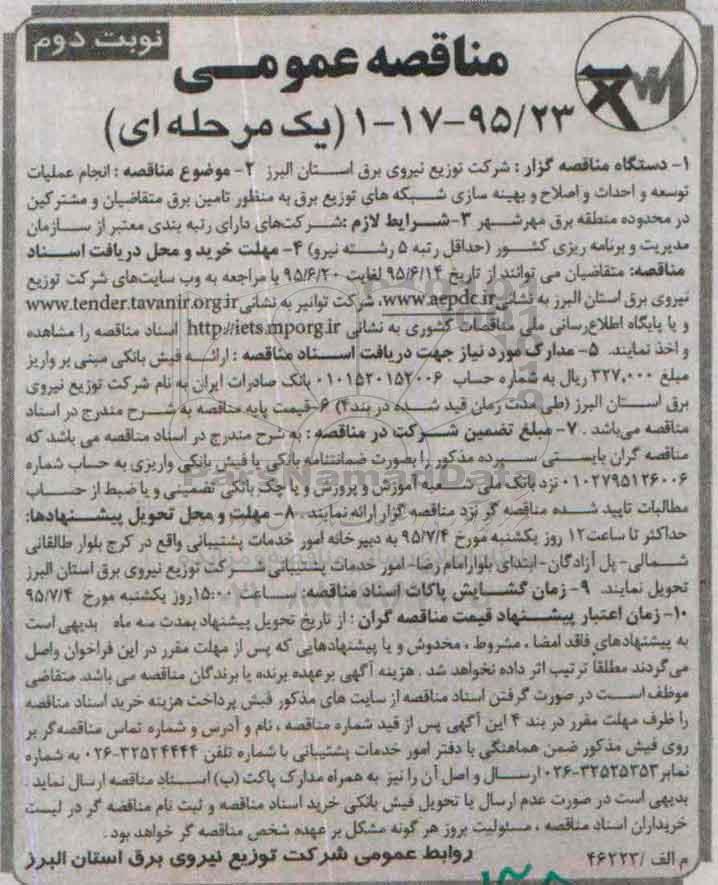 نوبت دوم
مناقصه عمومی
۱-۱۷-۹۵/۲۳ (یک مرحله ای)
۱- دستگاه مناقصه گزار : شرکت توزیع نیروی برق استان البرز ۲- موضوع مناقصه : انجام عملیات
توسعه و احداث و اصلاح و بهینه سازی شبکه های توزیع برق به منظور تامین برق متقاضیان و مشترکین
در محدوده منطقه برق مهرشهر ۳-شرایط لازم :شرکت‌های دارای رتبه بندی معتبر از سازمان
مدیریت و برنامه ریزی کشور (حداقل رتبه ۵ رشته نیرو) ۴- مهلت خرید و محل دریافت اسناد
مناقصه: متقاضیان می توانند از تاریخ ۹۵/۶/۱۴ لغایت ۹۵/۶/۲۰ با مراجعه به وب سایت‌های شرکت توزیع
نیروی برق استان البرز به نشانی www.aepdc.ir، شرکت توانیر به نشانی www.tender.tavanir.org.ir
و یا پایگاه اطلاع‌رسانی ملی مناقصات کشوری به نشانی http://iets.mporg.ir اسناد مناقصه را مشاهده
و اخذ نمایند. ۵- مدارک مورد نیاز جهت دریافت اسناد مناقصه : ارائه فیش بانکی مبنی بر واریز
مبلغ ۳۲۷,۰۰۰ ریال به شماره حساب ۰۱۰۱۵۲۰۱۵۲۰۰۶ بانک صادرات ایران به نام شرکت توزیع نیروی
برق استان البرز (طی مدت زمان قید شده در بند۴) ۶-قیمت پایه مناقصه به شرح مندرج در اسناد
مناقصه می‌باشد . ۷- مبلغ تضمین شرکت در مناقصه : به شرح مندرج در اسناد مناقصه می باشد که
مناقصه گران بایستی سپرده مذکور را بصورت ضمانتنامه بانکی یا فیش بانکی واریزی به حساب شماره
۰۱۰۲۷۹۵۱۲۶۰۰۶ نزد بانک ملی شعبه آموزش و پرورش و یا چک بانکی تضمینی و یا ضبط از حساب
مطالبات تایید شده مناقصه گر نزد مناقصه گزار ارائه نمایند . ۸- مهلت و محل تحویل پیشنهادها:
حداکثر تا ساعت۱۲ روز یکشنبه مورخ ۹۵/۷/۴ به دبیرخانه امور خدمات پشتیبانی واقع در کرج بلوار طالقانی
شمالی- پل آزادگان- ابتدای بلوارامام رضا- امور خدمات پشتیبانی شرکت توزیع نیروی برق استان البرز
تحویل نمایند. ۹- زمان گشایش پاکات اسناد مناقصه: ساعت ۱۵:۰۰روز یکشنبه مورخ ۹۵/۷/۴
۱۰- زمان اعتبار پیشنهاد قیمت مناقصه گران : از تاریخ تحویل پیشنهاد بمدت سه ماه بدیهی است
به پیشنهادهای فاقد امضا ، مشروط ، مخدوش و یا پیشنهادهایی که پس از مهلت مقرر در این فراخوان واصل
می گردند مطلقا ترتیب اثر داده نخواهد شد . هزینه آگهی برعهده برنده یا برندگان مناقصه می باشد. متقاضی
موظف است در صورت گرفتن اسناد مناقصه از سایت های مذکور فیش پرداخت هزینه خرید اسناد مناقصه
را ظرف مهلت مقرر در بند ۴ این آگهی پس از قید شماره مناقصه ، نام و آدرس و شماره تماس مناقصه‌گر بر
روی فیش مذکور ضمن هماهنگی با دفتر امور خدمات پشتیبانی با شماره تلفن ۳۲۵۲۴۴۴۴-۰۲۶ به شماره
نمابر ۳۲۵۲۵۳۵۳-۰۲۶ ارسال و اصل آن را نیز به همراه مدارک پاکت (ب) اسناد مناقصه ارسال نماید .
بدیهی است در صورت عدم ارسال یا تحویل فیش بانکی خرید اسناد مناقصه و ثبت نام مناقصه گر در لیست
خریداران اسناد مناقصه ، مسئولیت بروز هر گونه مشکل بر عهده شخص مناقصه گر خواهد بود .
م الف /۴۶۲۲۳ روابط عمومی شرکت توزیع نیروی برق استان البرز